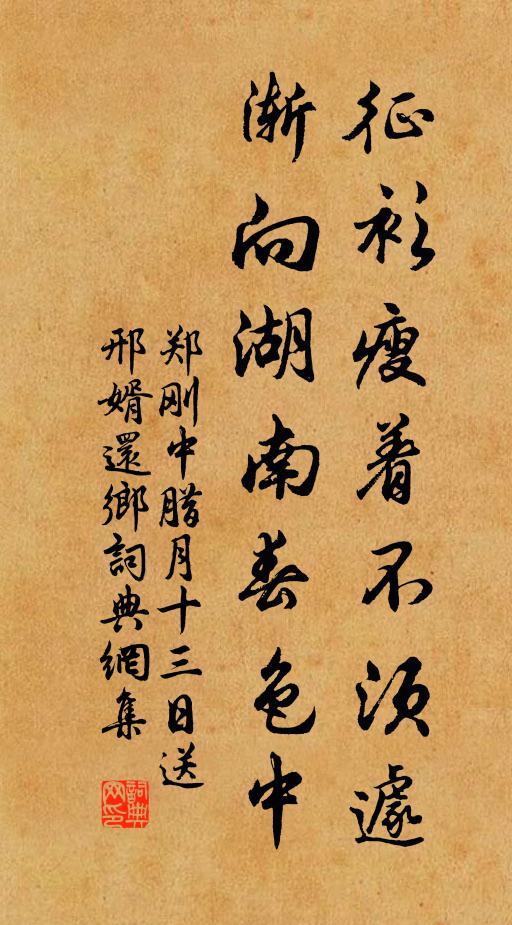 征衫瘦着不须遽
渐向湖南春色中
郑刚中腊月十三日送
邢婿還鄉詞典網集
詞典
网印